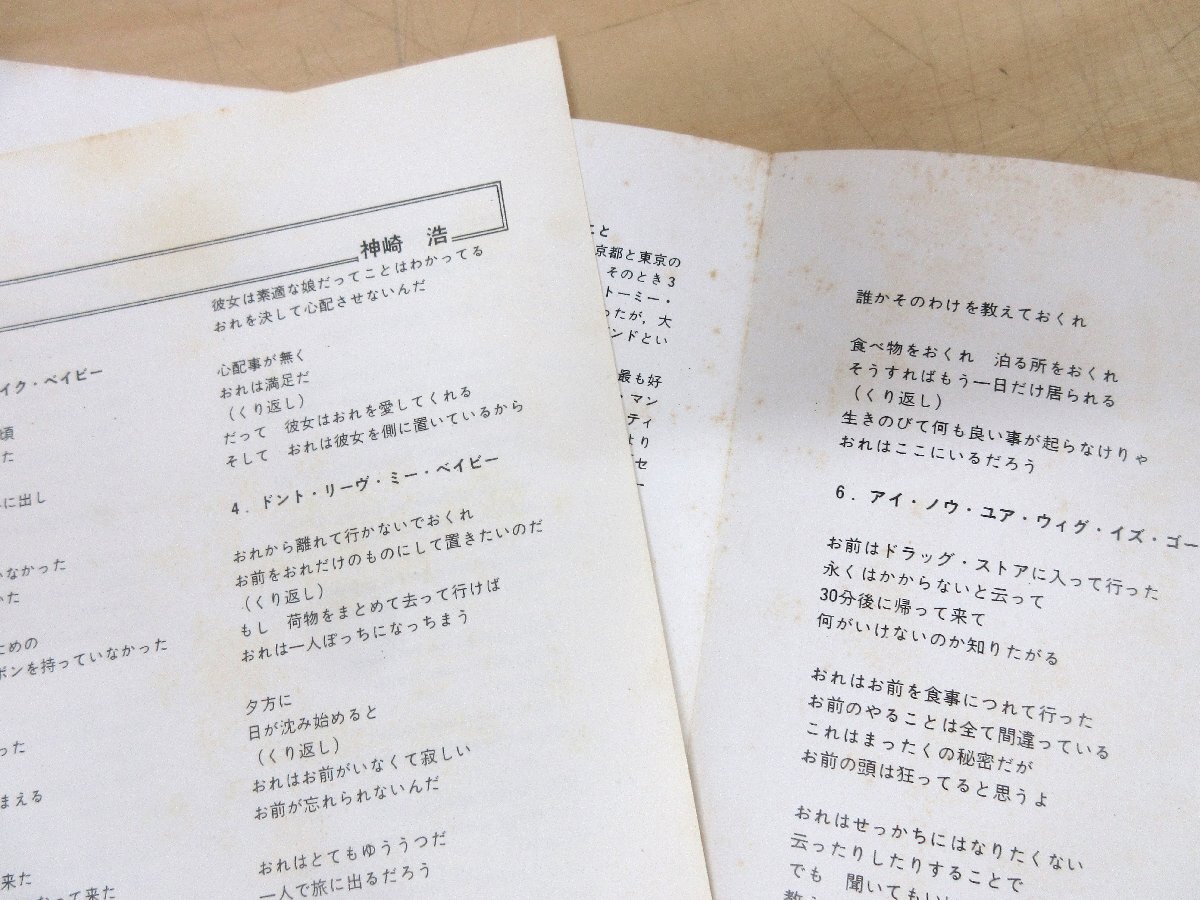 神崎 浩
イク・ベイビー
頃
た
に出し
なかった
いた
ための
ボンを持っていなかった
った
まえる
来た
って来た
彼女は素適な娘だってことはわかってる
おれを決して心配させないんだ
心配事が無く
おれは満足だ
(くり返し)
だって 彼女はおれを愛してくれる
そして おれは彼女を側に置いているから
4. ドント・リーヴ・ミー・ベイビー
おれから離れて行かないでおくれ
お前をおれだけのものにして置きたいのだ
(くり返し)
もし 荷物をまとめて去って行けば
おれは一人ぽっちになっちまう
夕方に
日が沈み始めると
(くり返し)
おれはお前がいなくて寂しい
お前が忘れられないんだ
おれはとてもゆううつだ
一人で旅に出るだろう
こと
京都と東京の
そのとき3
トーミー・
ったが,大
ンドとい
最も好
・マン
ティ
より
セ
ー
誰かそのわけを教えておくれ
食べ物をおくれ 泊る所をおくれ
そうすればもう一日だけ居られる
(くり返し)
生きのびて何も良い事が起らなけりゃ
おれはここにいるだろう
6. アイ・ノウ・ユア・ウィグ・イズ・ゴー
お前はドラッグ・ストアに入って行った
永くはかからないと云って
30分後に帰って来て
何がいけないのか知りたがる
おれはお前を食事につれて行った
お前のやることは全て間違っている
これはまったくの秘密だが
お前の頭は狂ってると思うよ
おれはせっかちにはなりたくない
云ったりしたりすることで
でも 聞いてもい
教え